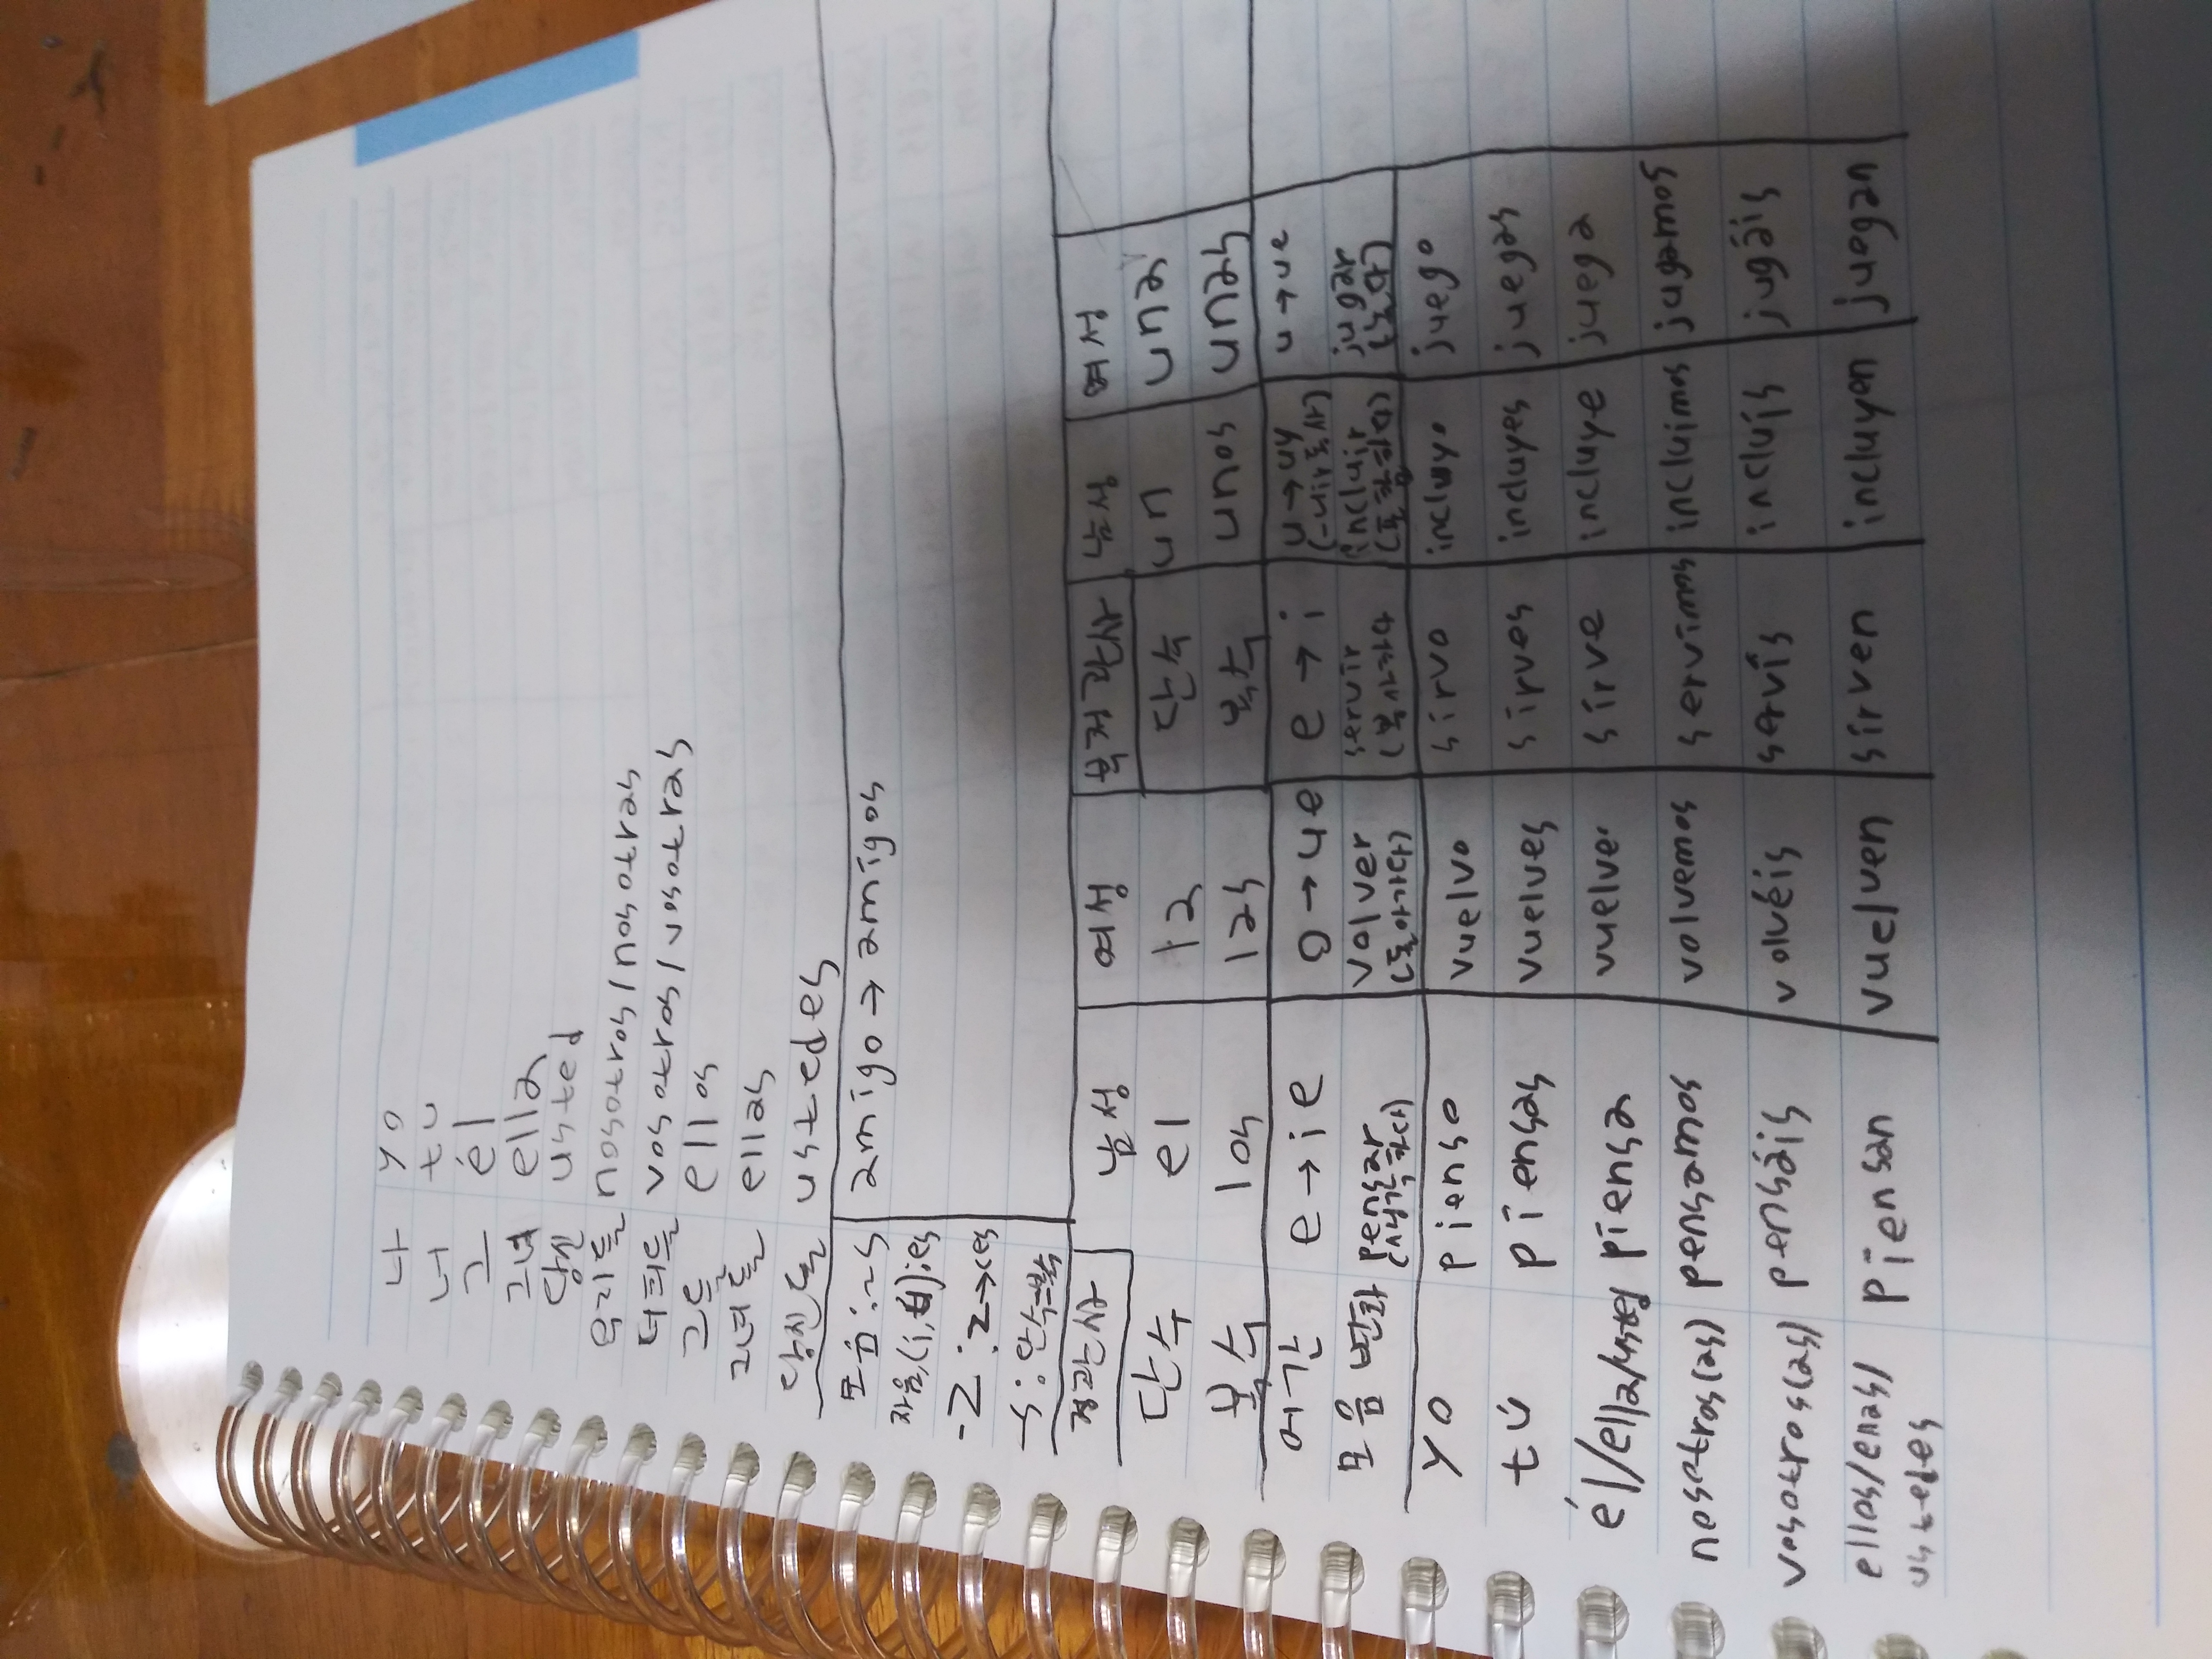 나 yo
너 tú
그 él
그녀 ella
당신 usted
우리들 nosotros/nosotras
너희들 vosotros/vosotras
그들 ellos
그녀들 ellas
당신들 ustedes
모음:~s amigo → amigos
자음,(í,ú):es
-z : z→ces
-s : 단수=복수
정관사 남성 여성 부정관사 남성 여성
단수 el la 단수 un una
복수 los las 복수 unos unas
어간 e→ie o→ue e→i u→uy u→ue
(-uir동사)
모음 변화 pensar volver servir incluir jugar
(생각하다) (돌아가다) (봉사하다 (포함하다) (놀다)
yo pienso vuelvo sirvo incluyo juego
tú piensas vuelves sirves incluyes juegas
él/ella/usted piensa vuelve sirve incluye juega
nosotros(as) pensamos volvemos servimos incluimos jugamos
vosotros(as) pensáis volvéis servís incluís jugáis
ellos/ellas/ piensan vuelven sirven incluyen juegan
ustedes